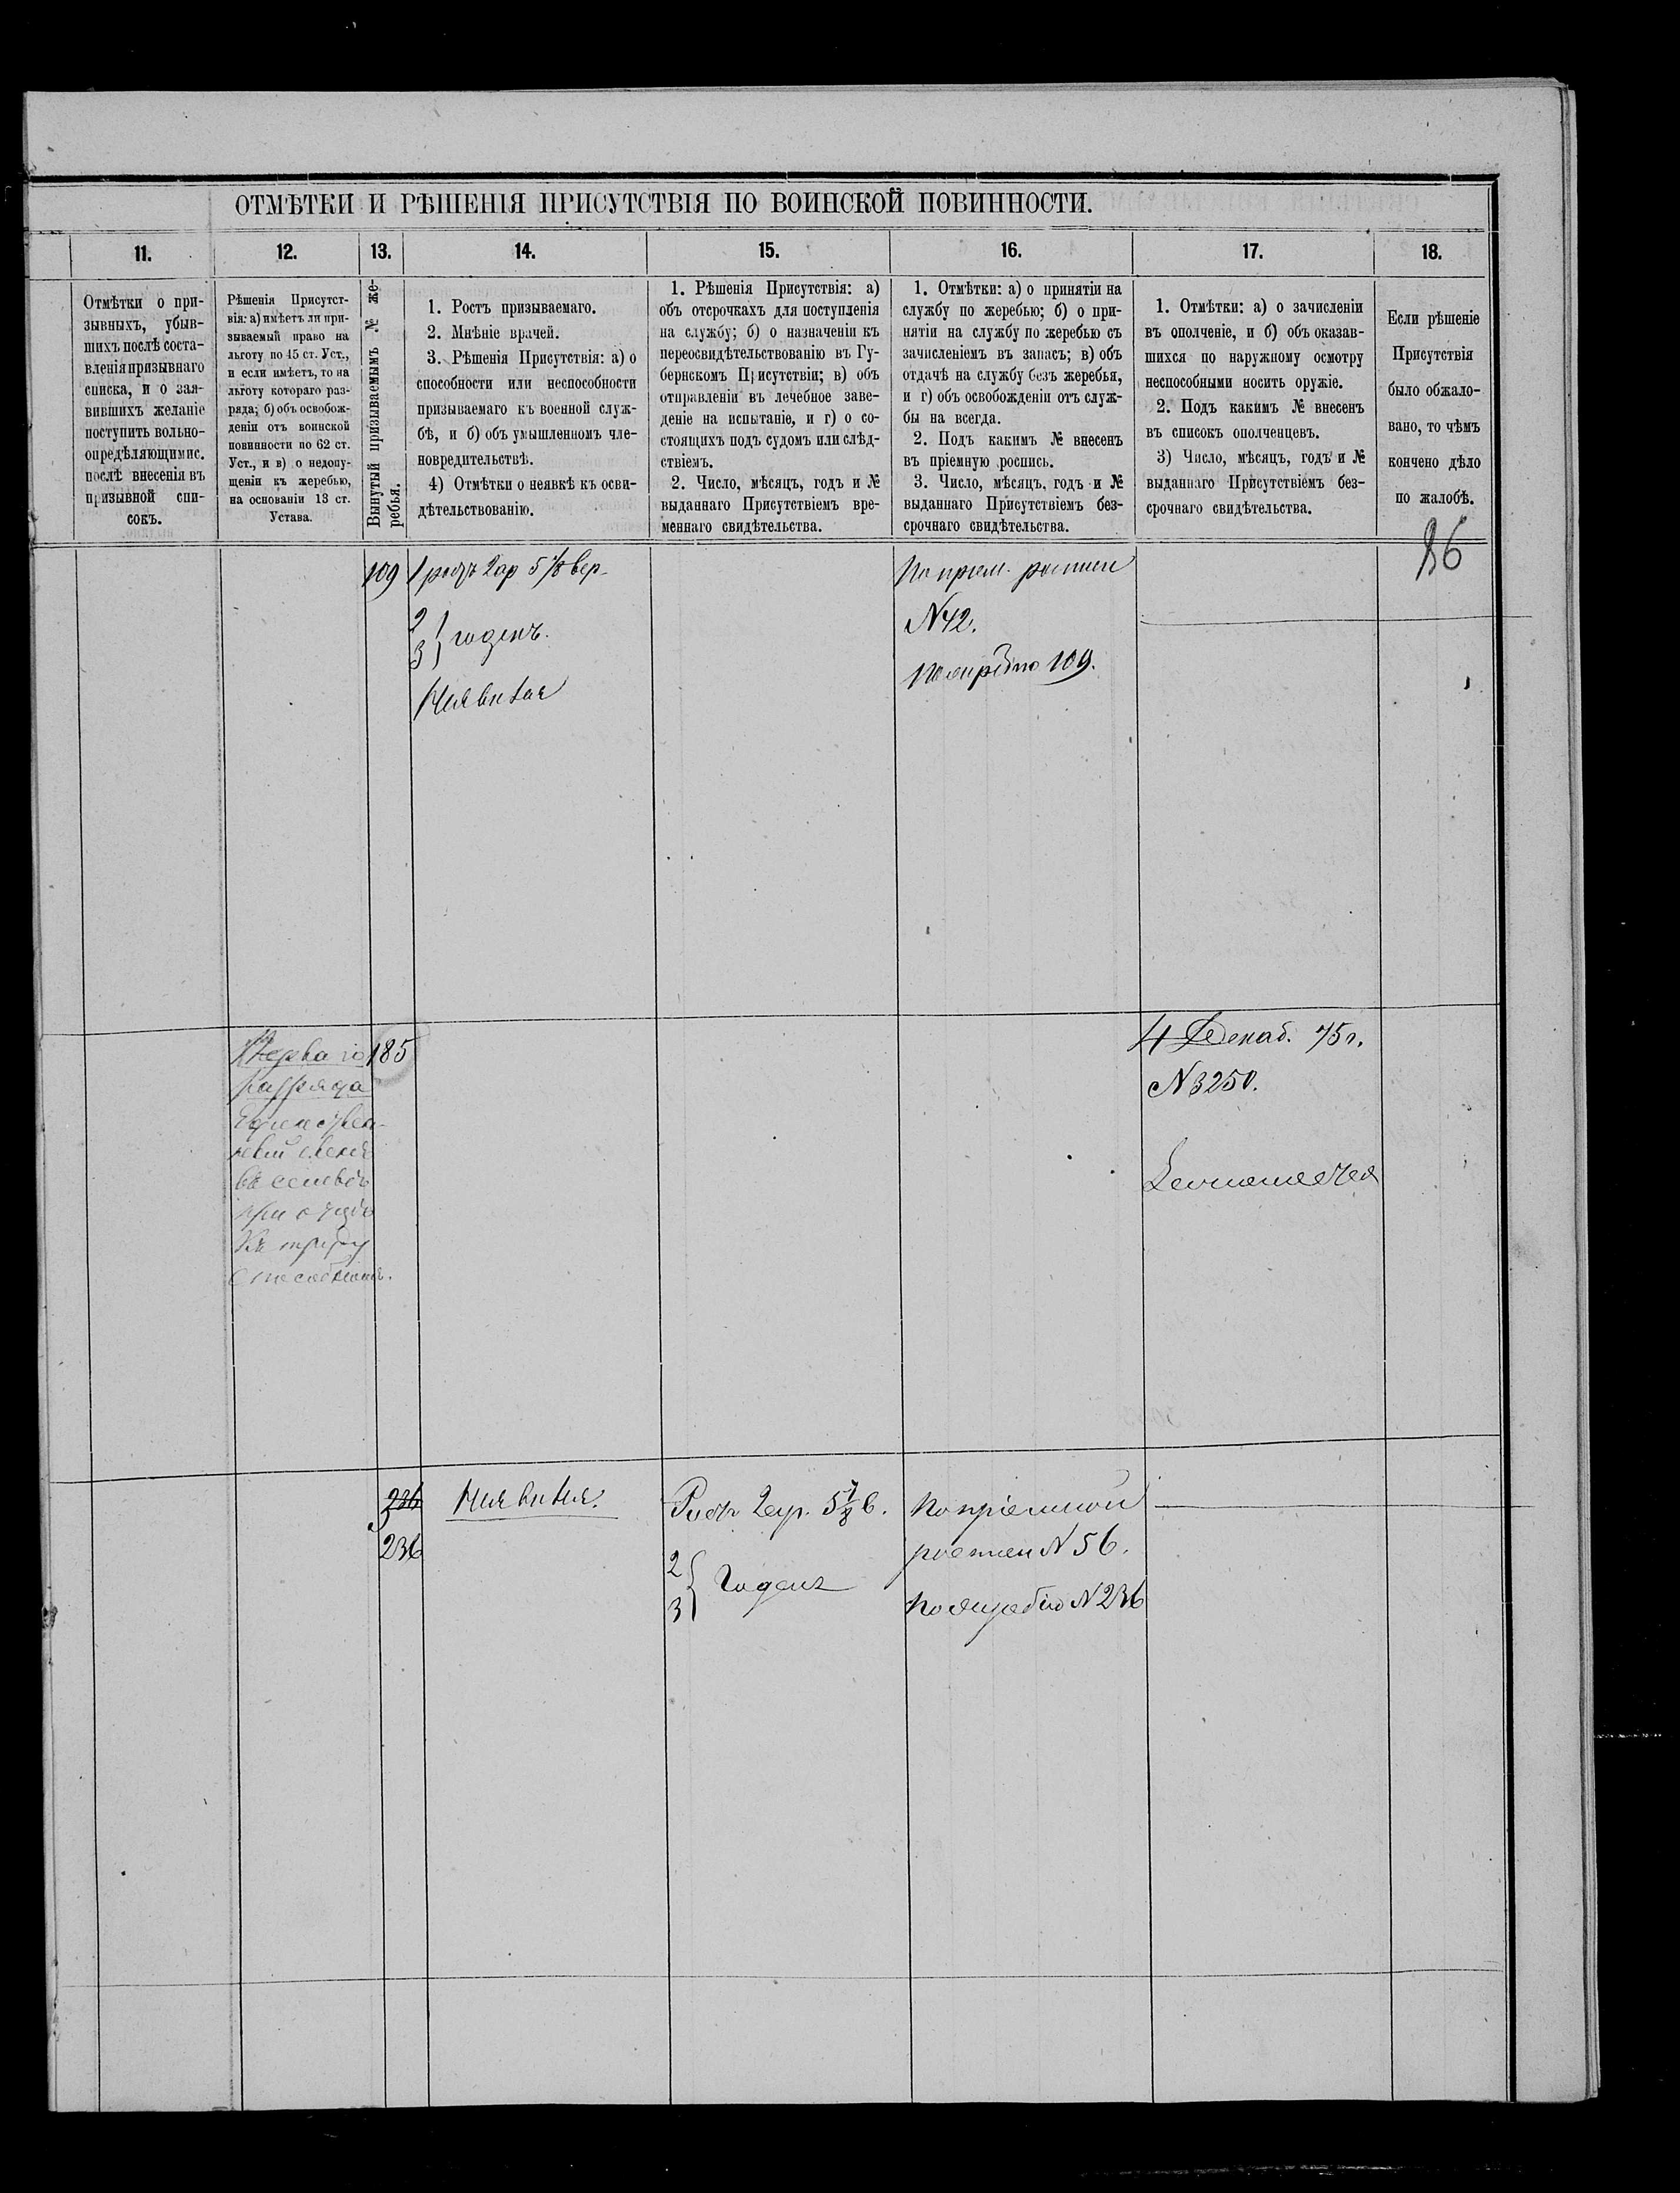 ОТМѢТКИ И РѢШЕНІЯ ПРИСУТСТВІЯ ПО ВОИНСКОЙ ПОВИННОСТИ.
11.
Отмѣтки о при-
зывныхъ, убыв-
шихъ послѣ соста-
вленія призывнаго
списка, и о зая-
вившихъ желаніе
поступить вольно-
опредѣляющимис.
послѣ внесенія въ
призывной спи-
сокъ.
12.
Рѣшенія Присутст-
вія: а) имѣетъ ли при-
зываемый право на
льготу по 45 ст. Уст.,
и если имѣетъ, то на
льготу котораго раз-
ряда; б) объ освобож-
деніи отъ воинской
повинности по 62 ст.
Уст., и в) о недопу-
щеніи къ жеребью,
на основаніи 13 ст.
Устава.
13.
Вынутый призываемымъ № же-
ребья.
14.
1. Ростъ призываемаго.
2. Мнѣніе врачей.
3. Рѣшенія Присутствія: а) о
способности или неспособности
призываемаго къ военной служ-
бѣ, и б) объ умышленномъ чле-
новредительствѣ.
4) Отмѣтки о неявкѣ къ осви-
дѣтельствованію.
15.
1. Рѣшенія Присутствія: а)
объ отсрочкахъ для поступленія
на службу; б) о назначеніи къ
переосвидѣтельствованію въ Гу-
бернскомъ Присутствіи; в) объ
отправленіи въ лечебное заве-
деніе на испытаніе, и г) о со-
стоящихъ подъ судомъ или слѣд-
ствіемъ.
2. Число, мѣсяцъ, годъ и №
выданнаго Присутствіемъ вре-
меннаго свидѣтельства.
16.
1. Отмѣтки: а) о принятіи на
службу по жеребью; б) о при-
нятіи на службу по жеребью съ
зачисленіемъ въ запасъ; в) объ
отдачѣ на службу безъ жеребья,
и г) объ освобожденіи отъ служ-
бы на всегда.
2. Подъ какимъ № внесенъ
въ пріемную роспись.
3. Число, мѣсяцъ, годъ и №
выданнаго Присутствіемъ без-
срочнаго свидѣтельства.
17.
1. Отмѣтки: а) о зачисленіи
въ ополченіе, и б) объ оказав-
шихся по наружному осмотру
неспособными носить оружіе.
2. Подъ какимъ № внесенъ
въ списокъ ополченцевъ.
3) Число, мѣсяцъ, годъ и №
выданнаго Присутствіемъ без-
срочнаго свидѣтельства.
18.
Если рѣшеніе
Присутствія
было обжало-
вано, то чѣмъ
кончено дѣло
по жалобѣ.
109
1 ростъ 2 ар 5 1/8 вер.
2
3 } годенъ.
По прием. росписи
N 42.
По жеребію 109.
Перваго
разряда
Единствен-
въ семьѣ
при отцѣ
къ труду
способномъ.
185
4 Декаб. 75 г.
N 3250.
236
236
Ростъ 2 ар. 5 7/8 в.
2
3 } Годенъ
По пріемной
росписи N 56.
По жеребію N 236